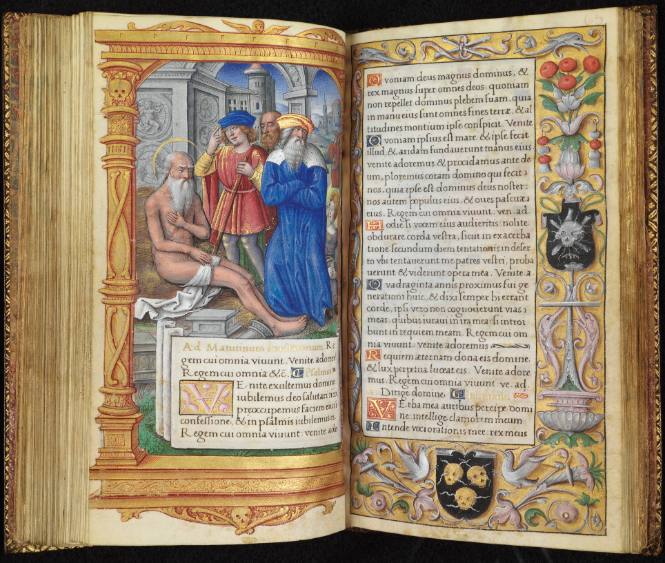 Ad Matutinum Invitatorium. Re
gem cui omnia viuunt. Venite adoremꝰ
Regem cui omnia &c. Psalmus
VEnite exultemus domino
iubilemus deo salutari nostro
preoccupemus faciem eius in
confessione, & in psalmis iubilemus ei.
Regem cui omnia viuunt. venite ado
Quoniam deus magnus dominus, &
rex magnus super omnes deos. quoniam
non repellet dominus plebem suam, quia
in manu eius sunt omnes fines terræ, & al
titudines montium ipse conspicit. Venite
Quoniam ipsius est mare & ipse fecit
illud, & aridam fundauerunt manus eius
venite adoremus & procidamus ante de
um, ploremus coram domino qui fecit
nos, quia ipse est dominus deus noster:
nos autem populus eius, & oues pascuæ
eius. Regem cui omnia viuunt. ven. ad.
Hodie si vocem eius audieritis: nolite
obdurare corda vestra, sicut in exacerba
tione secundum diem tentationis in deser
to vbi tentauerunt me patres vestri, proba
uerunt & viderunt opera mea. Venite. a
Quadraginta annis proximus fui ge
nerationi huic, & dixi semper hi errant
corde, ipsi vero non cognouerunt vias
meas, quibus iuraui in ira mea: si introi
bunt in requiem meam. Regem cui om
nia viuunt. venite adoremus
Requiem æternam dona eis domine,
& lux perpetua luceat eis. Venite adore
mus. Regem cui omnia viuunt. ve. ad.
Dirige domine.
VErba mea auribus percipe domi
ne, intellige clamorem meum
Intende voci orationis meæ: rex meus